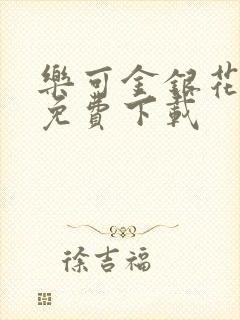 樂可金銀花
免費下載
徐吉福